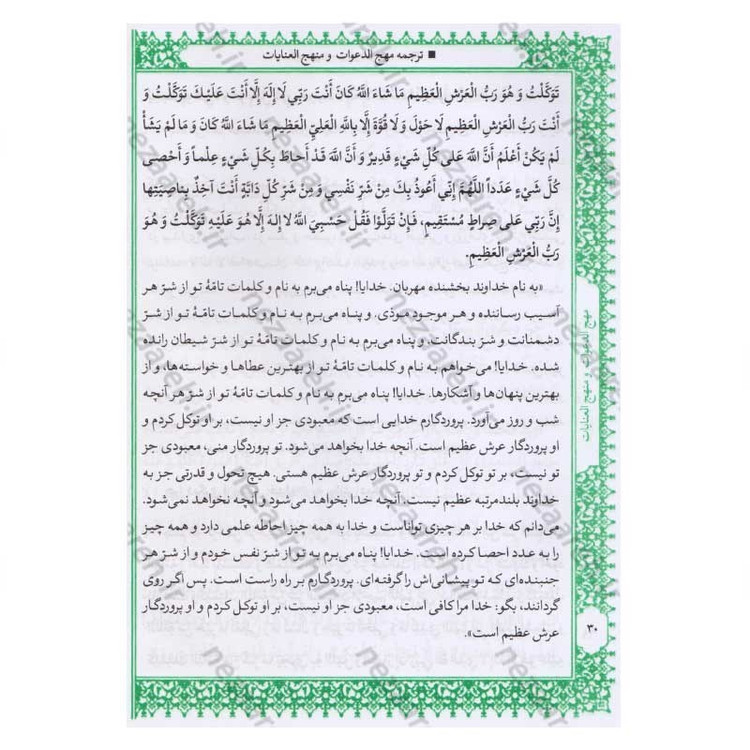 ■ ترجمه مهج الدعوات و منهج العنایات
تَوَكَّلْتُ وَ هُوَ رَبُّ الْعَرْشِ الْعَظِيمِ مَا شَاءَ اللَّهُ كَانَ أَنْتَ رَبِّي لَا إِلَهَ إِلَّا أَنْتَ عَلَيْكَ تَوَكَّلْتُ وَ
أَنْتَ رَبُّ الْعَرْشِ الْعَظِيمِ لَا حَوْلَ وَ لَا قُوَّةَ إِلَّا بِاللَّهِ الْعَلِيِّ الْعَظِيمِ مَا شَاءَ اللَّهُ كَانَ وَ مَا لَمْ يَشَأْ
لَمْ يَكُنْ أَعْلَمُ أَنَّ اللَّهَ عَلَى كُلِّ شَيْءٍ قَدِيرٌ وَ أَنَّ اللَّهَ قَدْ أَحَاطَ بِكُلِّ شَيْءٍ عِلْماً وَ أَحْصَى
كُلَّ شَيْءٍ عَدَداً اللَّهُمَّ إِنِّي أَعُوذُ بِكَ مِنْ شَرِّ نَفْسِي وَ مِنْ شَرِّ كُلِّ دَابَّةٍ أَنْتَ آخِذٌ بِنَاصِيَتِهَا
إِنَّ رَبِّي عَلَى صِرَاطٍ مُسْتَقِيمٍ، فَإِنْ تَوَلَّوْا فَقُلْ حَسْبِيَ اللَّهُ لَا إِلَهَ إِلَّا هُوَ عَلَيْهِ تَوَكَّلْتُ وَ هُوَ
رَبُّ الْعَرْشِ الْعَظِيمِ.
«به نام خداوند بخشنده مهربان. خدایا! پناه می‌برم به نام و کلمات تامّهٔ تو از شرّ هر
آسیب رساننده و هر موجود موذی. و پناه می‌برم به نام و کلمات تامّهٔ تو از شرّ
دشمنانت و شرّ بندگانت، و پناه می‌برم به نام و کلمات تامّهٔ تو از شرّ شیطان رانده
شده. خدایا! می‌خواهم به نام و کلمات تامّهٔ تو از بهترین عطاها و خواسته‌ها، و از
بهترین پنهان‌ها و آشکارها. خدایا! پناه می‌برم به نام و کلمات تامّهٔ تو از شرّ هر آنچه
شب و روز می‌آورد. پروردگارم خدایی است که معبودی جز او نیست، بر او توکل کردم و
او پروردگار عرش عظیم است. آنچه خدا بخواهد می‌شود. تو پروردگار منی، معبودی جز
تو نیست، بر تو توکل کردم و تو پروردگار عرش عظیم هستی. هیچ تحول و قدرتی جز به
خداوند بلندمرتبه عظیم نیست. آنچه خدا بخواهد می‌شود و آنچه نخواهد نمی‌شود.
می‌دانم که خدا بر هر چیزی تواناست و خدا به همه چیز احاطه علمی دارد و همه چیز
را به عدد احصا کرده است. خدایا! پناه می‌برم به تو از شرّ نفس خودم و از شرّ هر
جنبنده‌ای که تو پیشانی‌اش را گرفته‌ای. پروردگارم بر راه راست است. پس اگر روی
گردانند، بگو: خدا مرا کافی است، معبودی جز او نیست، بر او توکل کردم و او پروردگار
عرش عظیم است».
مهج الدعوات و منهج العنایات
۳۰
nezaareh.ir